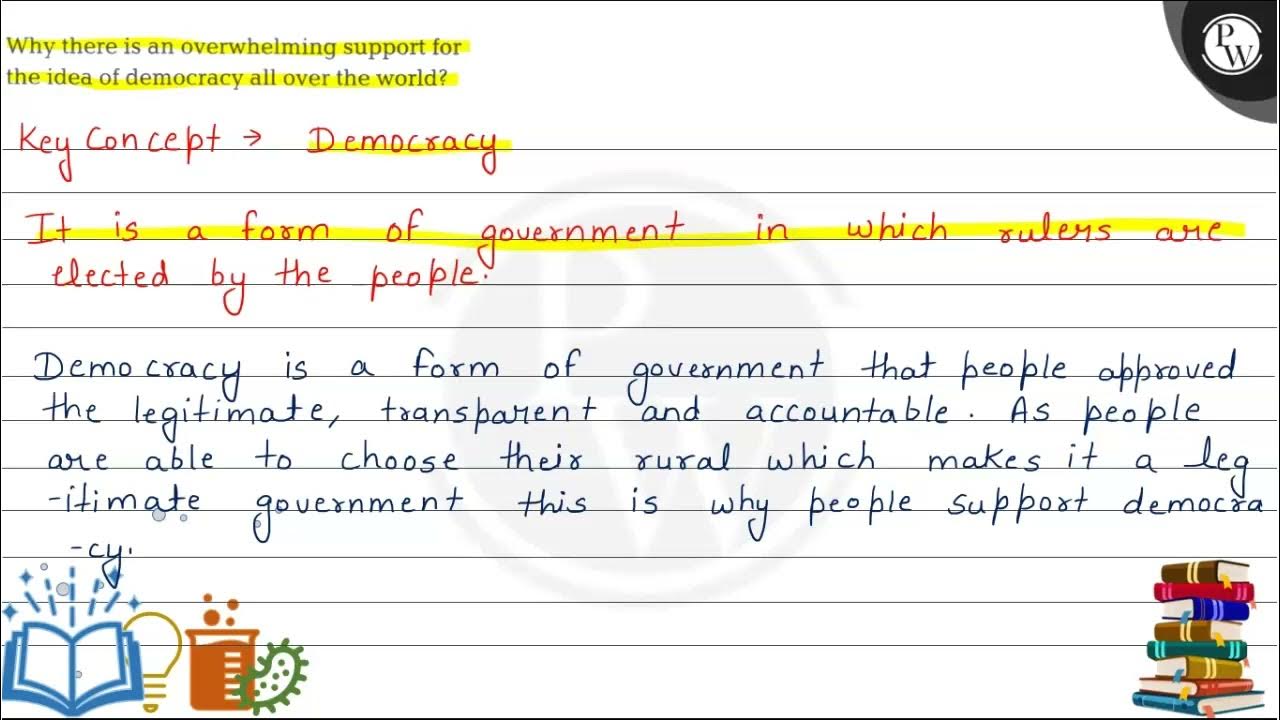 Why there is an overwhelming support for
the idea of democracy all over the world?
PW
Key Concept → Democracy
It is a form of government in which rulers are
elected by the people.
Democracy is a form of government that people approved
the legitimate, transparent and accountable. As people
are able to choose their rural which makes it a leg
-itimate government this is why people support democra
-cy.